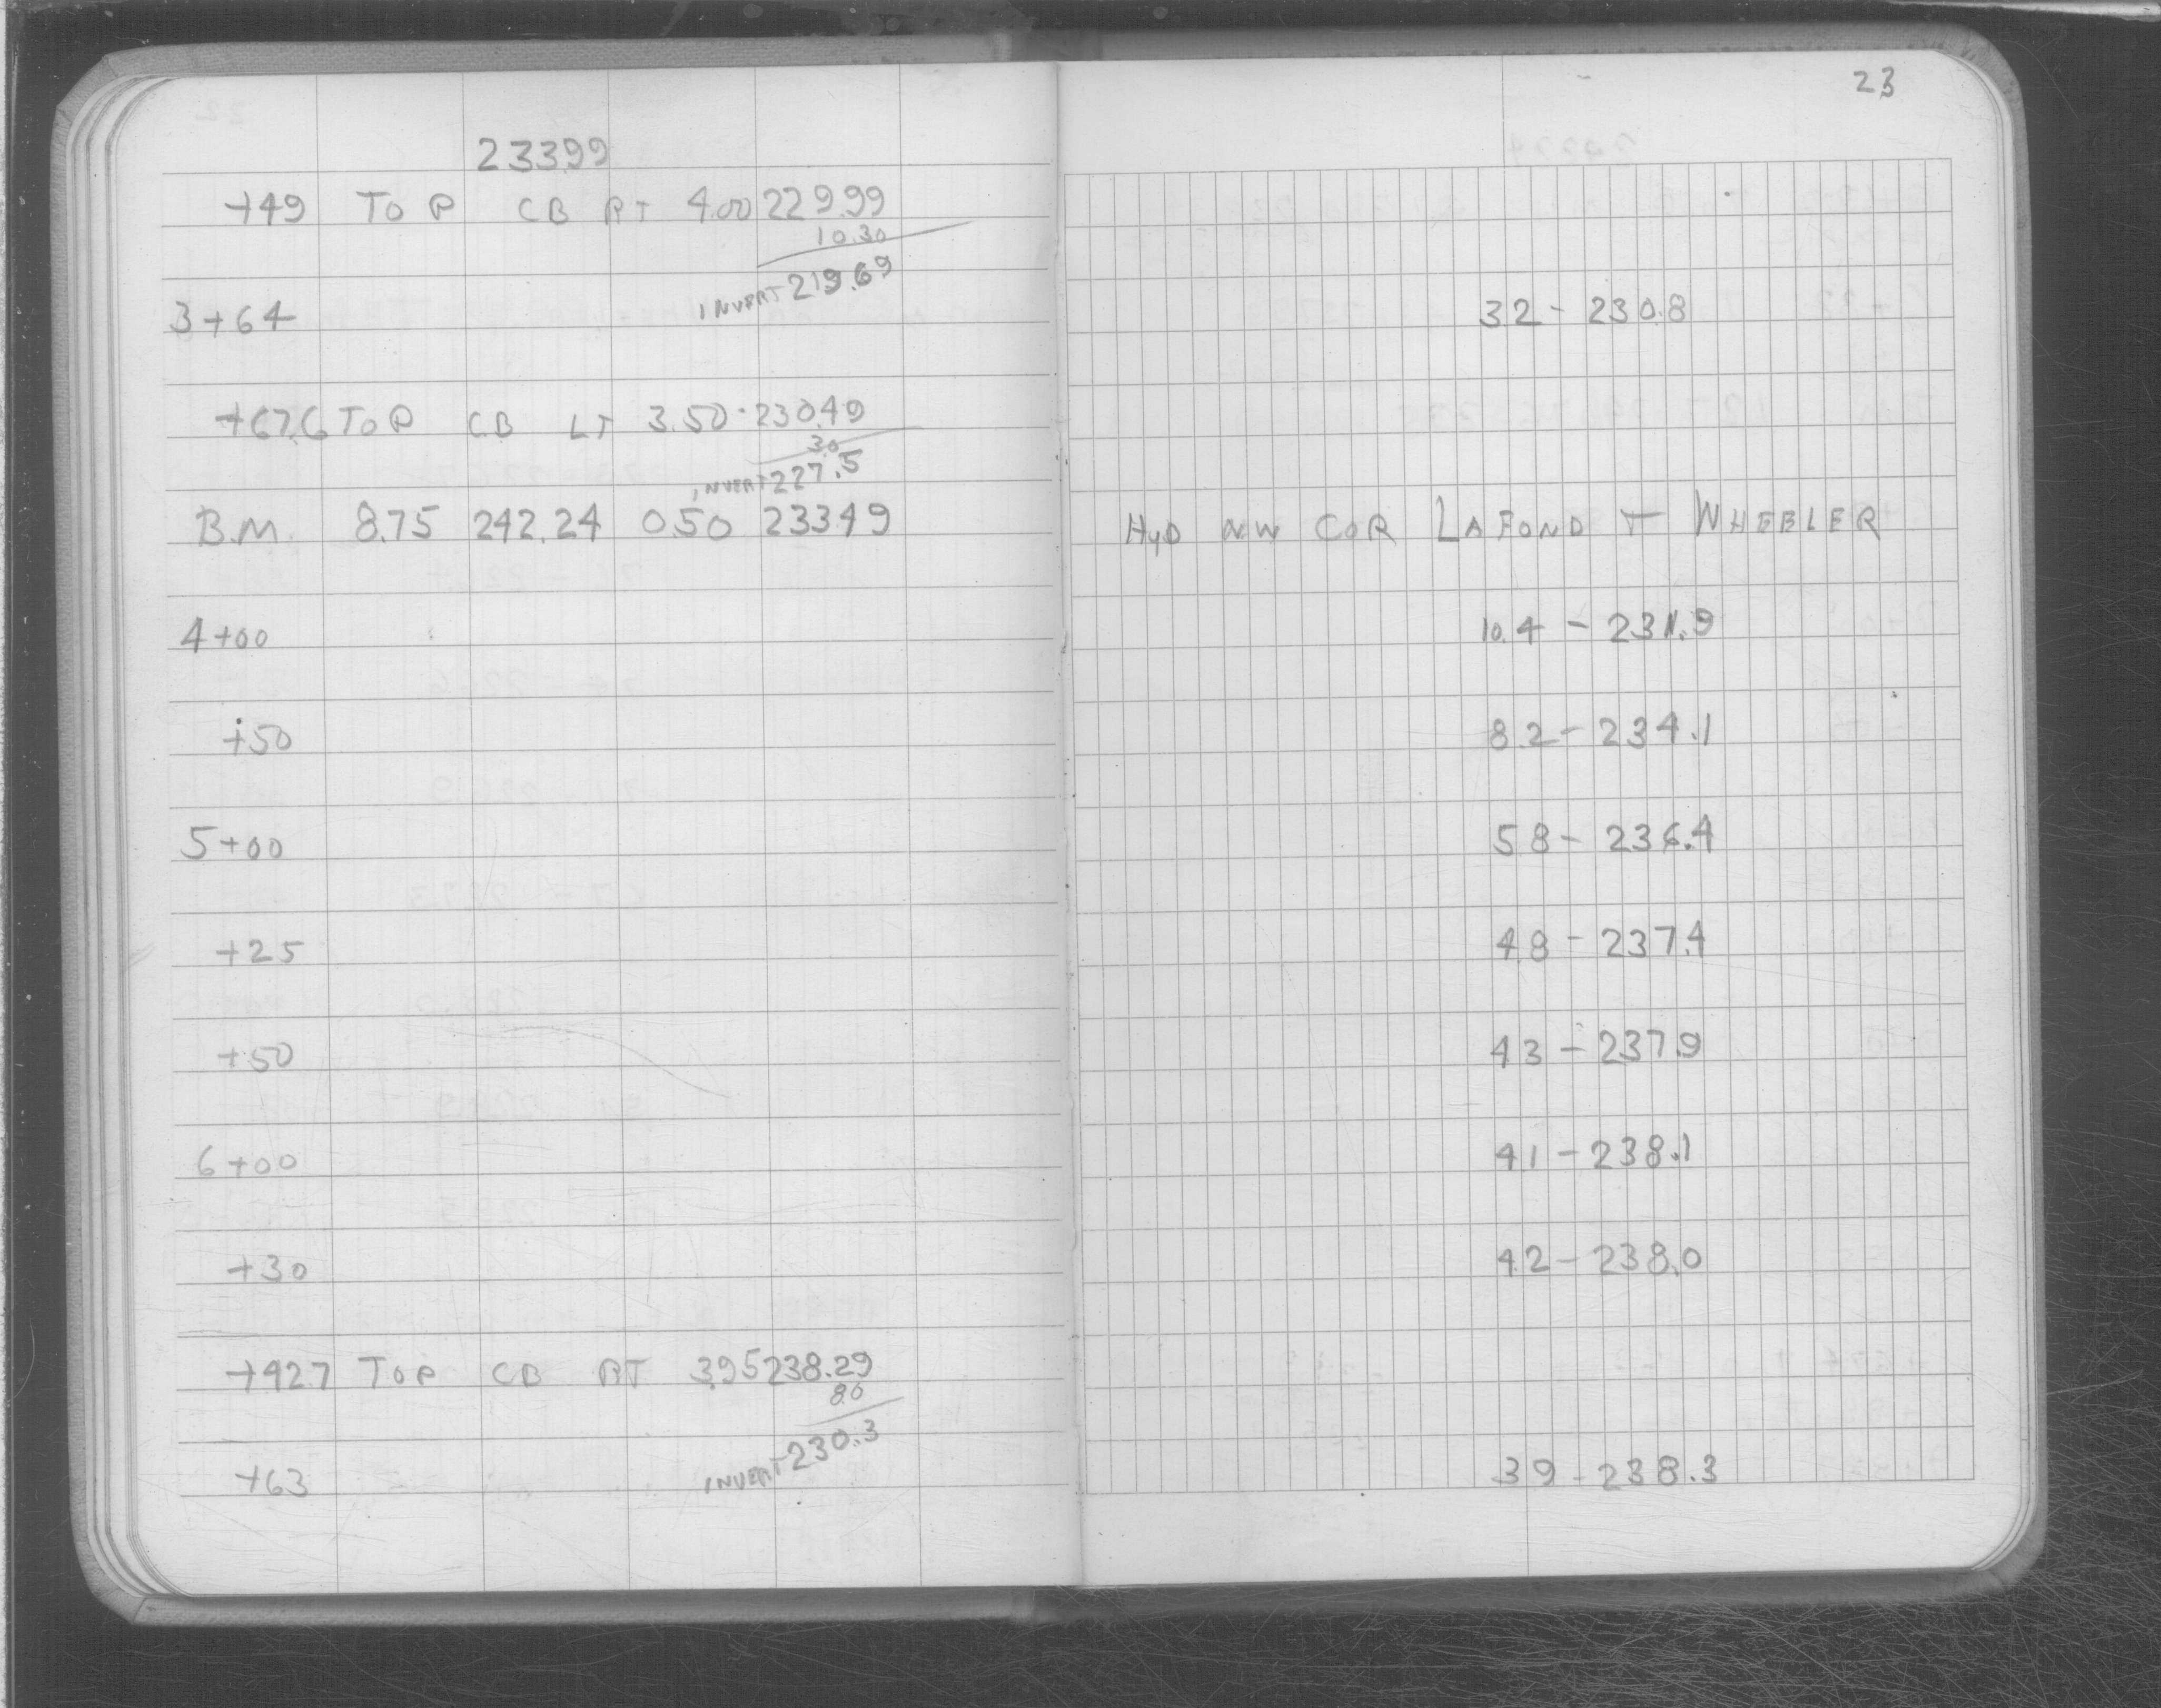 23
233.99
+49 TOP CB RT 4.00 229.99
10.30
INVERT 219.69
3+64 3.2 - 230.8
+67.6 TOP CB LT 3.50 230.49
3.0
INVERT 227.5
B.M. 8.75 242.24 0.50 233.49 HYD NW COR LAFOND + WHEELER
4+00 10.4 - 231.9
+50 8.2 - 234.1
5+00 5.8 - 236.4
+25 4.8 - 237.4
+50 4.3 - 237.9
6+00 4.1 - 238.1
+30 4.2 - 238.0
+42.7 TOP CB RT 3.95 238.29
8.0
INVERT 230.3
+63 3.9 - 238.3